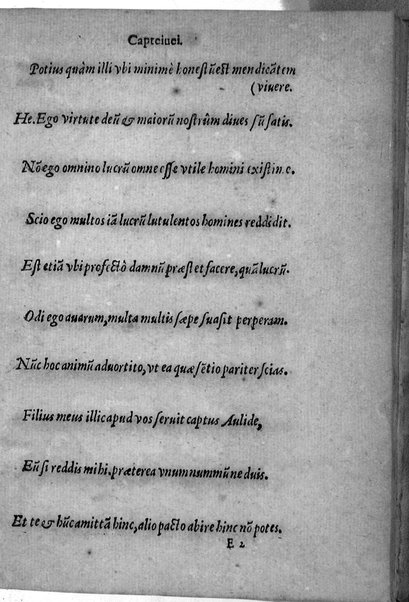 Capteiuei.
Potius quàm illi vbi minimè honestũ est mendicãtem
(viuere.
He. Ego virtute deũ & maiorũ nostrûm diues sũ satis.
Nõ ego omnino lucrũ omne esse vtile homini existimo.
Scio ego multos iã lucrũ lutulentos homines reddidit.
Est etiã vbi profectò damnũ præstet facere, quã lucrũ.
Odi ego auarum, multa multis sæpe suasit perperam.
Nũc hoc animũ aduortito, vt ea quæ sẽtio pariter scias.
Filius meus illic apud vos seruit captus Aulide,
Eũ si reddis mihi, præterea vnum nummũ ne duis.
Et te & hũc amittã hinc, alio pacto abire hinc nõ potes.
E 2